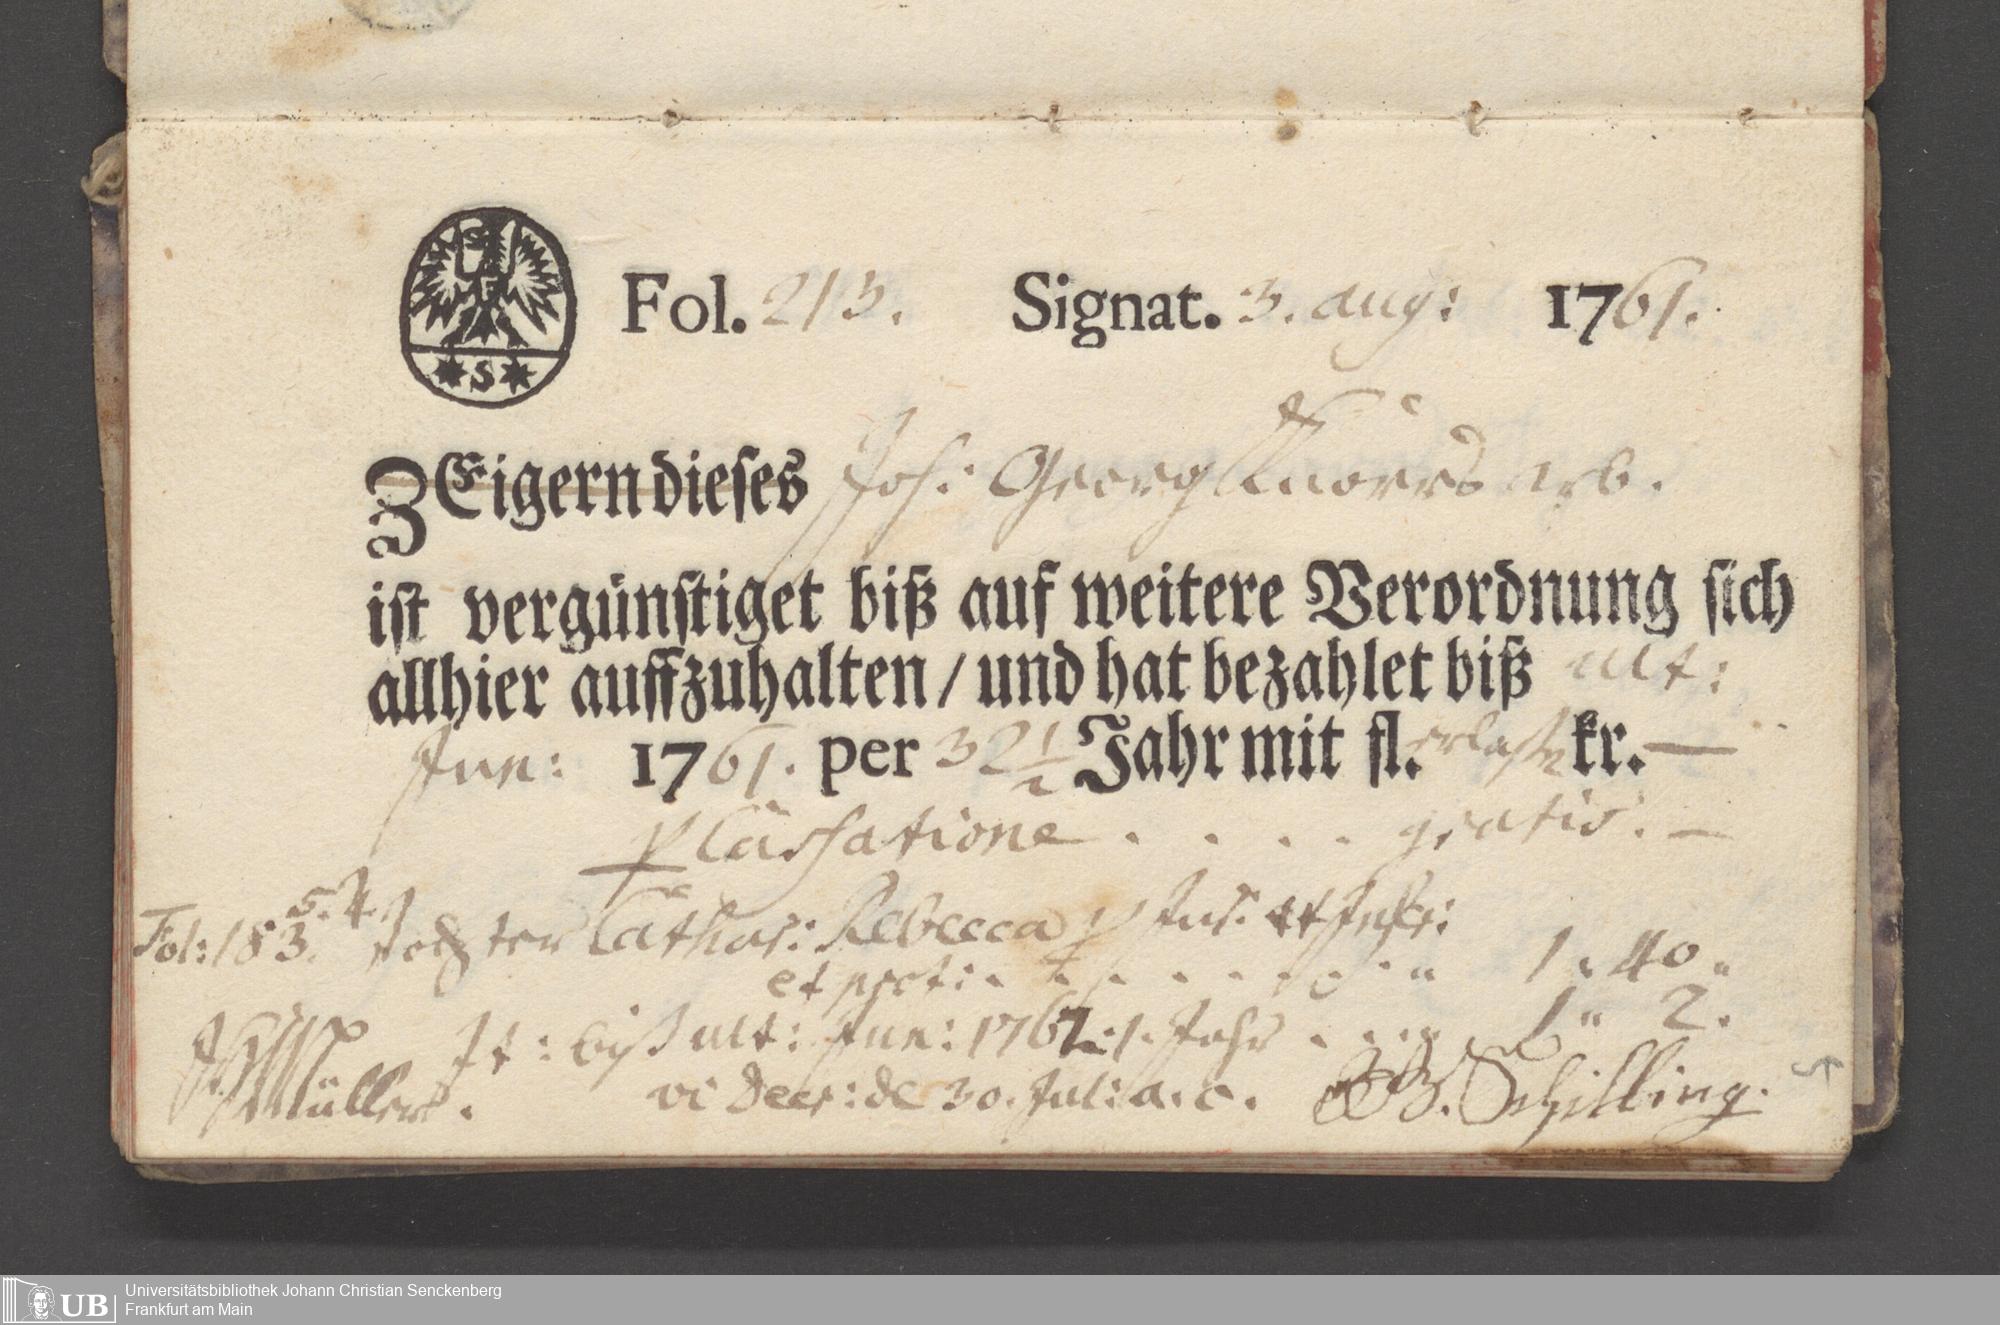 Fol. 213. Signat. 3. aug: 1761.
ZEigern dieses Joh: Georg Knorrs erb.
ist vergünstiget biß auf weitere Verordnung sich
allhier auffzuhalten / und hat bezahlet biß ult:
Jun: 1761. per 32 1/2 Jahr mit fl. erlaßen kr. —
p Cassatione . . . . gratis. —
Fol: 183. Cathar: Rebecca p Ins: et
et prot: . . . . . . . . " 1 " 40 "
It: biß ult: Jun: 1762. 1. Jahr . . . . 1 " 2.
Müller. vi Decr: de 30. Jul: a. c. Schilling.
S
Universitätsbibliothek Johann Christian Senckenberg
UB Frankfurt am Main